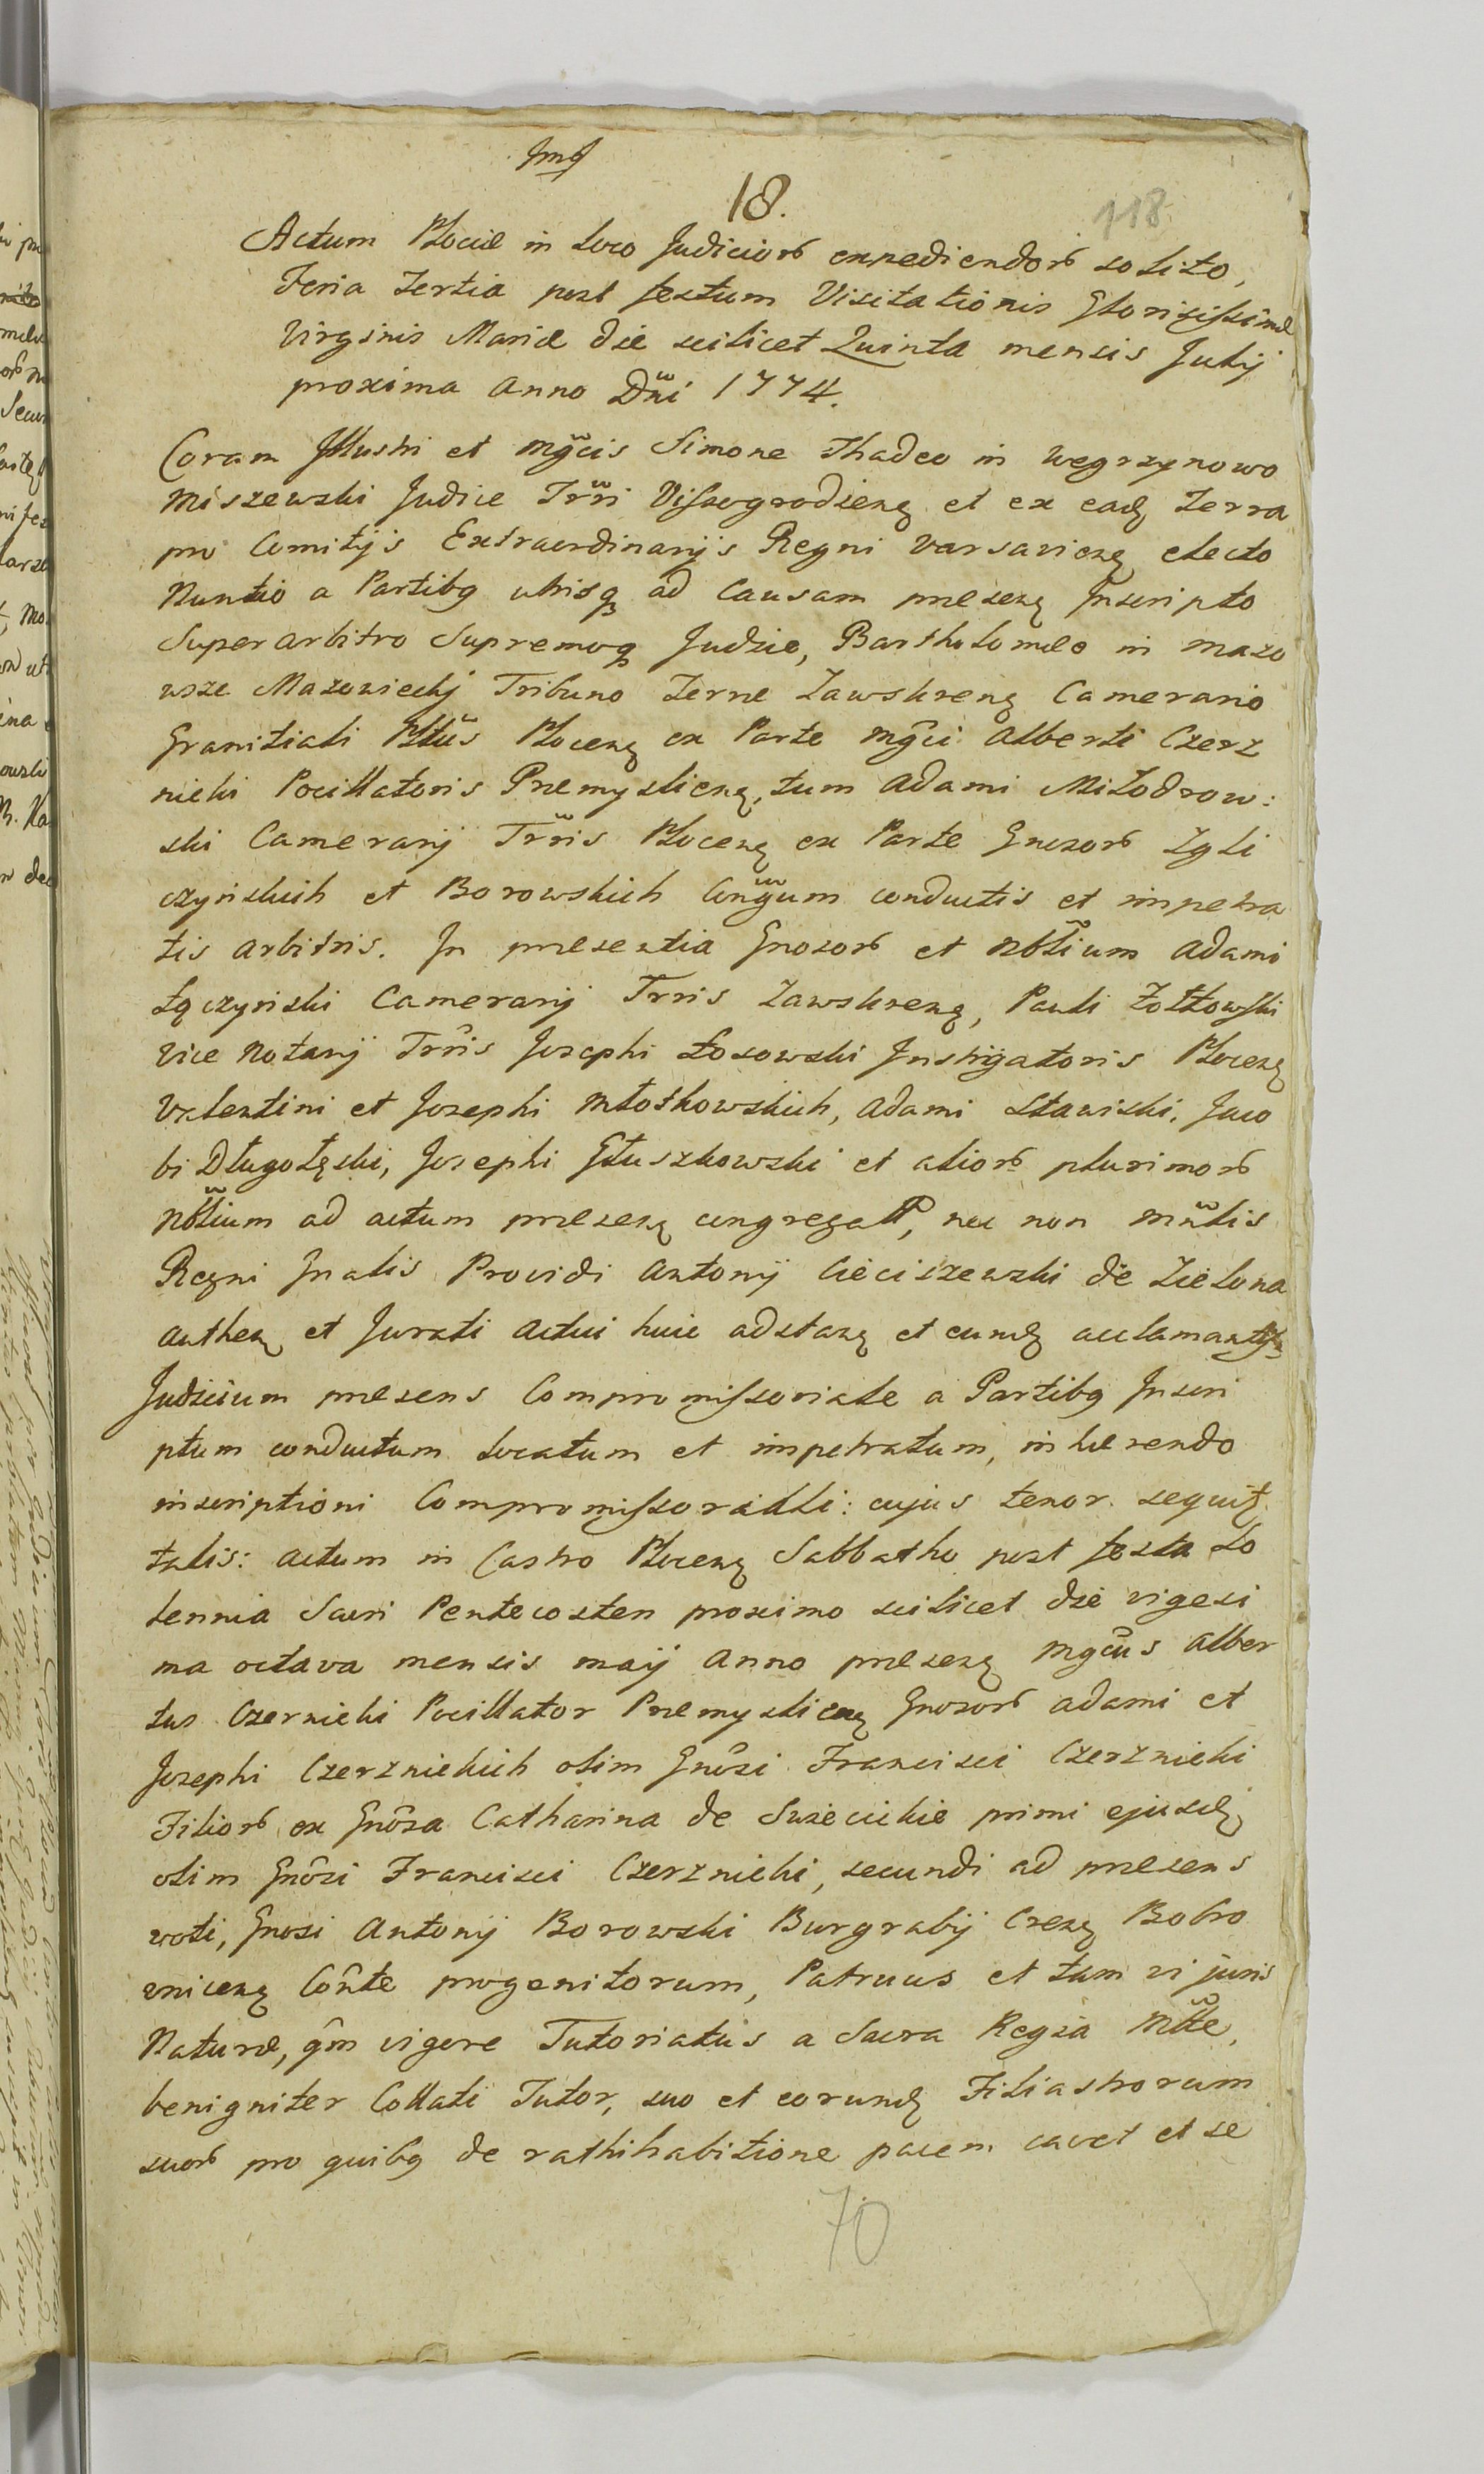 Jmj
18.
118
Actum Plociæ in loco Judiciorb expediendorb solito,
Feria Tertia post festum Visitationis Gloriosissimæ
Virginis Mariæ die scilicet Quinta mensis Julij
proxima Anno Dni 1774.
Coram Illustri et Mgcis Simone Thadeo in Węgrzynowo
Miszewski Judice Trri Vissogrodieng et ex eadg Terra
pro Comitijs Extraordinarijs Regni Varsavieng electo
Nuntio a Partibg utrisqg ad Causam præseng Inscripto
Superarbitro Supremoqg Judice, Bartholomæo in Mazo
wsze Mazowiecki Tribuno Terræ Zawskreng Camerario
Granitiali Pltus Ploceng ex Parte Mgci Alberti Czerz
nicki Pocillatoris Premyslieng, tum Adami Miłodrow:
ski Camerarij Trris Ploceng ex Parte Gnosorb Zgli
czyńskich et Borowskich Conjgum conductis et impetra
tis Arbitris. In præsentia Gnosorb et Nbłium Adami
Łączyński Camerarij Trris Zawskreng, Pauli Żółtowski
Vice Notarij Trris Josephi Łosowski Instigatoris Ploceng
Valentini et Josephi Młotkowskich, Adami Stawiski, Jaco
bi Długołęski, Josephi Głuszkowski et aliorb plurimorb
Nbłium ad actum præseng congregat, nec non Mnlis
Regni Gnalis Providi Antonij Cieciszewski de Zielona
autheng et Jurati Actui huic adstang et eundg acclamantis
Judicium præsens Compromissoriale a Partibg Inscri
ptum conductum locatum et impetratum, inhærendo
inscriptioni Compromissoriali: cujus tenor sequit
talis: Actum in Castro Ploceng Sabbatho post festa So
lennia Sacri Pentecosten proximo scilicet die vigesi
ma octava mensis Maij Anno præseng Mgcus Alber
tus Czernicki Pocillator Premyslieng Gnosorb Adami et
Josephi Czerznickich olim Gnosi Francisci Czerznicki
Filiorb ex Gnosa Catharina de Swiecickie primi ejusdg
olim Gnosi Francisci Czerznicki, secundi ad præsens
voti, Gnosi Antonij Borowski Burgrabij Creng Bobro
wniceng Conte progenitorum, Patruus et tam vi juris
Naturæ, qm vigore Tutoriatus a Sacra Regia Mtte,
benigniter Collati Tutor, suo et eorundg Filiastrorum
suorb pro quibg de rathihabitione pacem cavet et se
70